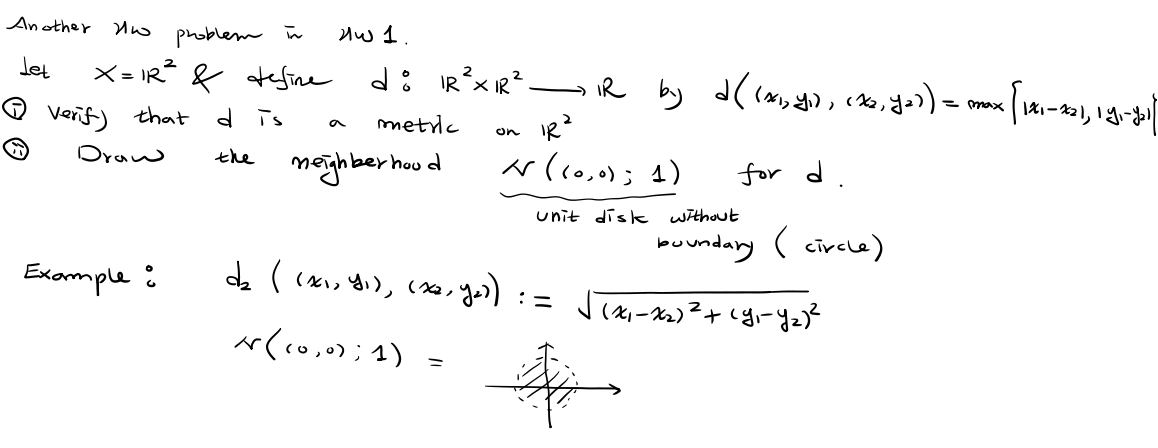 Another HW problem in HW 1.
Let X = ℝ² & define d : ℝ² × ℝ² ⟶ ℝ by d((x₁, y₁), (x₂, y₂)) = max{|x₁-x₂|, |y₁-y₂|}
ⓘ Verify that d is a metric on ℝ²
ⓘⓘ Draw the neighberhood N((0,0); 1) for d.
unit disk without
boundary (circle)
Example : d₂((x₁, y₁), (x₂, y₂)) := √((x₁-x₂)² + (y₁-y₂)²)
N((0,0); 1) =